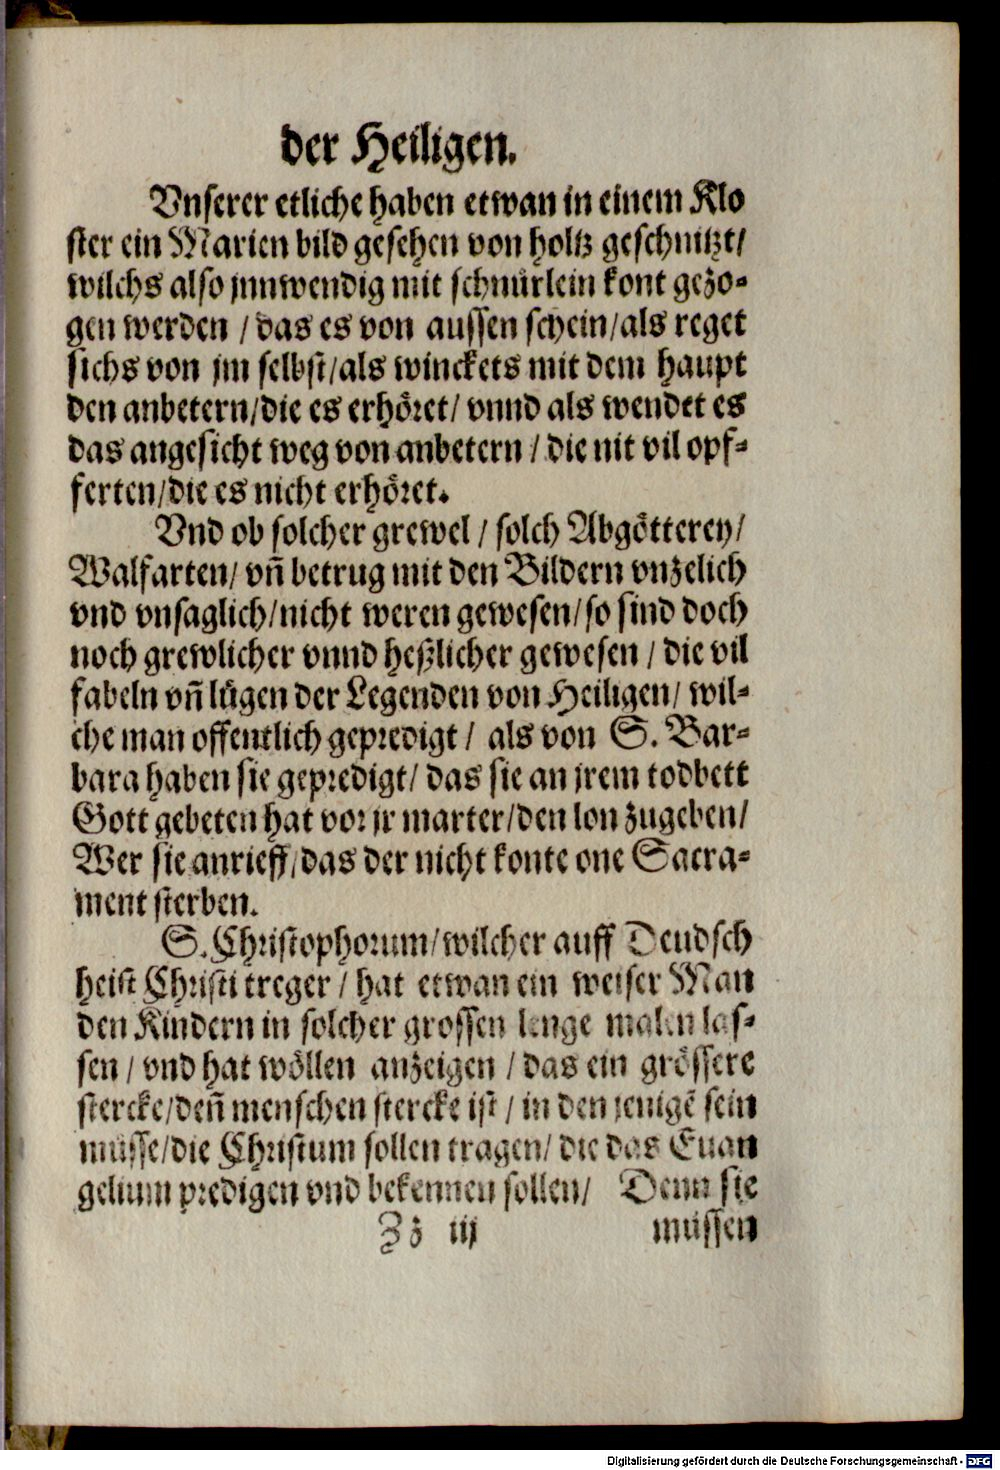 der Heiligen.
Vnserer etliche haben etwan in einem Klo
ster ein Marien bild gesehen von holtz geschnitzt/
wilchs also jnnwendig mit schnürlein kont gezo-
gen werden / das es von aussen schein/als reget
sichs von jm selbst/als winckets mit dem haupt
den anbetern/die es erhöret/ vnnd als wendet es
das angesicht weg von anbetern / die nit vil opf-
ferten/die es nicht erhöret.
Vnd ob solcher grewel / solch Abgötterey/
Walfarten/ vn̄ betrug mit den Bildern vnzelich
vnd vnsaglich/nicht weren gewesen/so sind doch
noch grewlicher vnnd heßlicher gewesen / die vil
fabeln vn̄ lügen der Legenden von Heiligen/ wil-
che man offentlich gepredigt / als von S. Bar-
bara haben sie gepredigt/ das sie an jrem todbett
Gott gebeten hat vor jr marter/den lon zugeben/
Wer sie anrieff/das der nicht konte one Sacra-
ment sterben.
S. Christophorum/wilcher auff Deudsch
heist Christi treger / hat etwan ein weiser Man
den Kindern in solcher grossen lenge malen las-
sen / vnd hat wöllen anzeigen / das ein grössere
stercke/den̄ menschen stercke ist / in den jenigē sein
müsse/die Christum sollen tragen/ die das Euan
gelium predigen vnd bekennen sollen/ Denn sie
Zz iij müssen
Digitalisierung gefördert durch die Deutsche Forschungsgemeinschaft - DFG